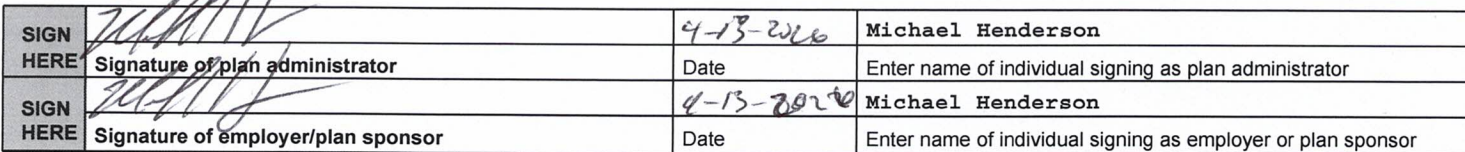 SIGN HERE 4-13-2026 Michael Henderson
Signature of plan administrator Date Enter name of individual signing as plan administrator
SIGN HERE 4-13-2026 Michael Henderson
Signature of employer/plan sponsor Date Enter name of individual signing as employer or plan sponsor